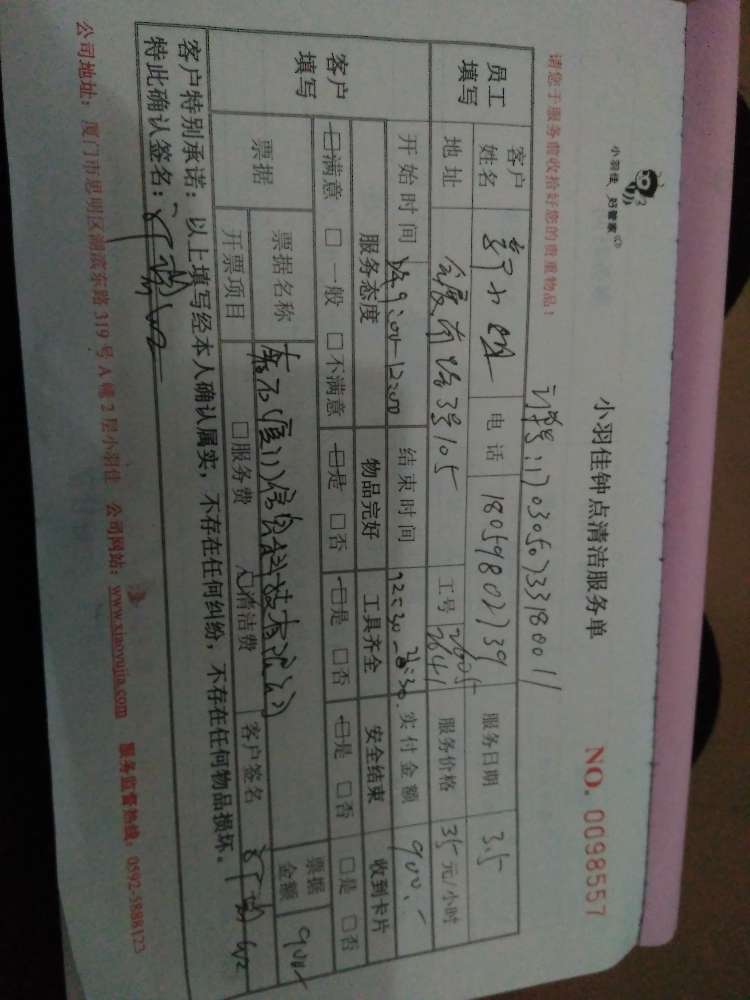 小羽佳 好管家
小羽佳钟点清洁服务单
NO. 0098557
请您于服务前收拾好您的贵重物品!
订单号:1703050733180011
员工填写
客户姓名 小姐 电话 18059802739 服务日期 3.5
地址 3号105 工号 2641 服务价格 35元/小时
客户填写
开始时间 9:00-12:00 结束时间 12:30 实付金额 900.-
服务态度 物品完好 工具齐全 安全结束 收到卡片
☑满意 □一般 □不满意 ☑是 □否 ☑是 □否 ☑是 □否 □是 □否
票据 票据名称 (厦门)信息科技有限公司 票据金额 900-
开票项目 □服务费 ☑清洁费 客户签名
客户特别承诺:以上填写经本人确认属实,不存在任何纠纷,不存在任何物品损坏。
特此确认签名:
公司地址:厦门市思明区湖滨东路319号A幢2层小羽佳 公司网站:www.xiaoyujia.com 服务监督热线:0592-5888123